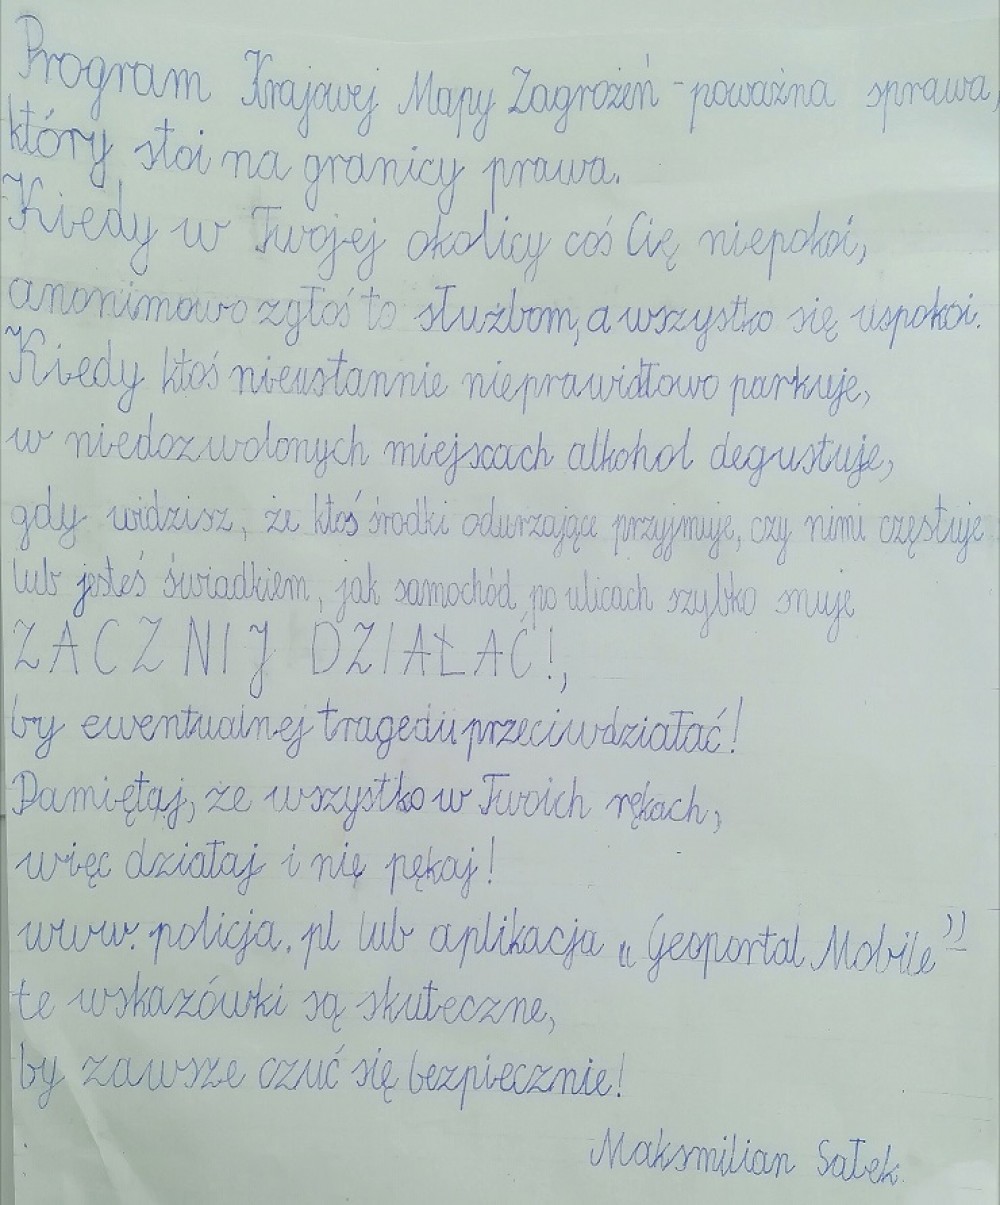 Program Krajowej Mapy Zagrożeń - poważna sprawa,
który stoi na granicy prawa.
Kiedy w Twojej okolicy coś Cię niepokoi,
anonimowo zgłoś to służbom, a wszystko się uspokoi.
Kiedy ktoś nieustannie nieprawidłowo parkuje,
w niedozwolonych miejscach alkohol degustuje,
gdy widzisz, że ktoś środki odurzające przyjmuje, czy nimi częstuje
lub jesteś świadkiem, jak samochód po ulicach szybko snuje
ZACZNIJ DZIAŁAĆ!,
by ewentualnej tragedii przeciwdziałać!
Pamiętaj, że wszystko w Twoich rękach,
więc działaj i nie pękaj!
www.policja.pl lub aplikacja „Geoportal Mobile”-
te wskazówki są skuteczne,
by zawsze czuć się bezpiecznie!
Maksmilian Sałek